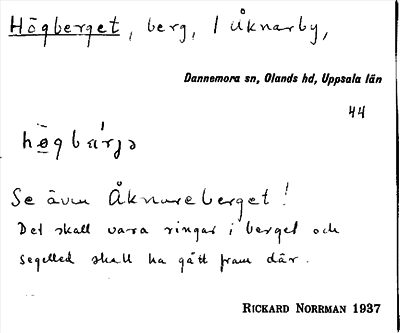 Högberget, berg, l Åknarby,
Dannemora sn, Olands hd, Uppsala län
44
hø̄gbærjə
Se även Åknareberget!
Det skall vara ringar i berget och
segelled skall ha gått fram där.
RICKARD NORRMAN 1937